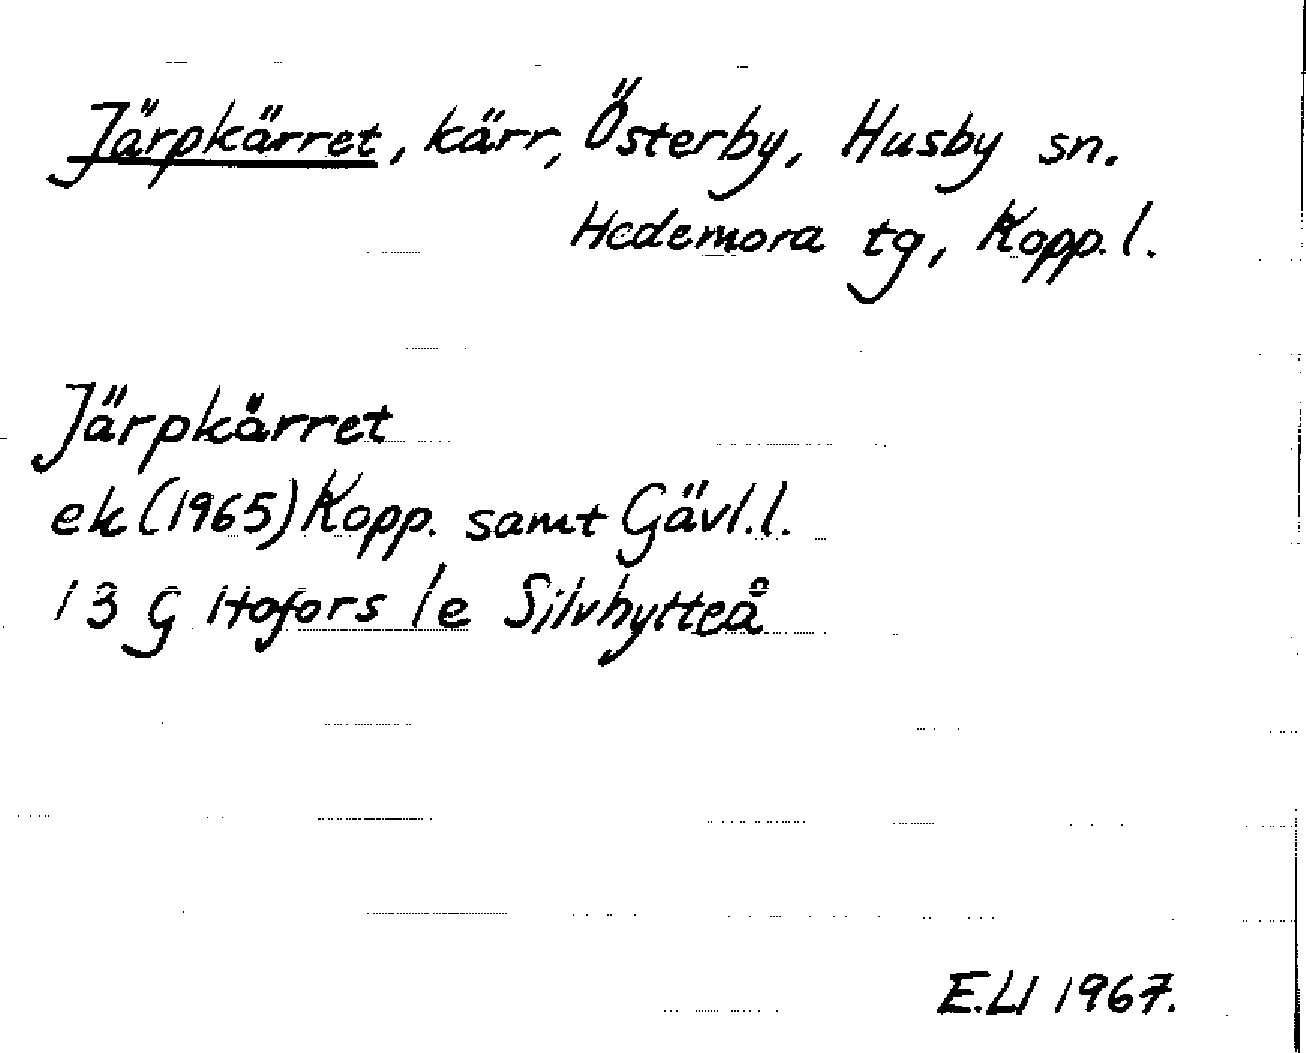 Järpkärret, kärr, Österby, Husby sn.
Hedemora tg, Kopp. l.
Järpkärret
ek (1965) Kopp. samt Gävl. l.
13 G Hofors 1e Silvhytteå
E.LI 1967.